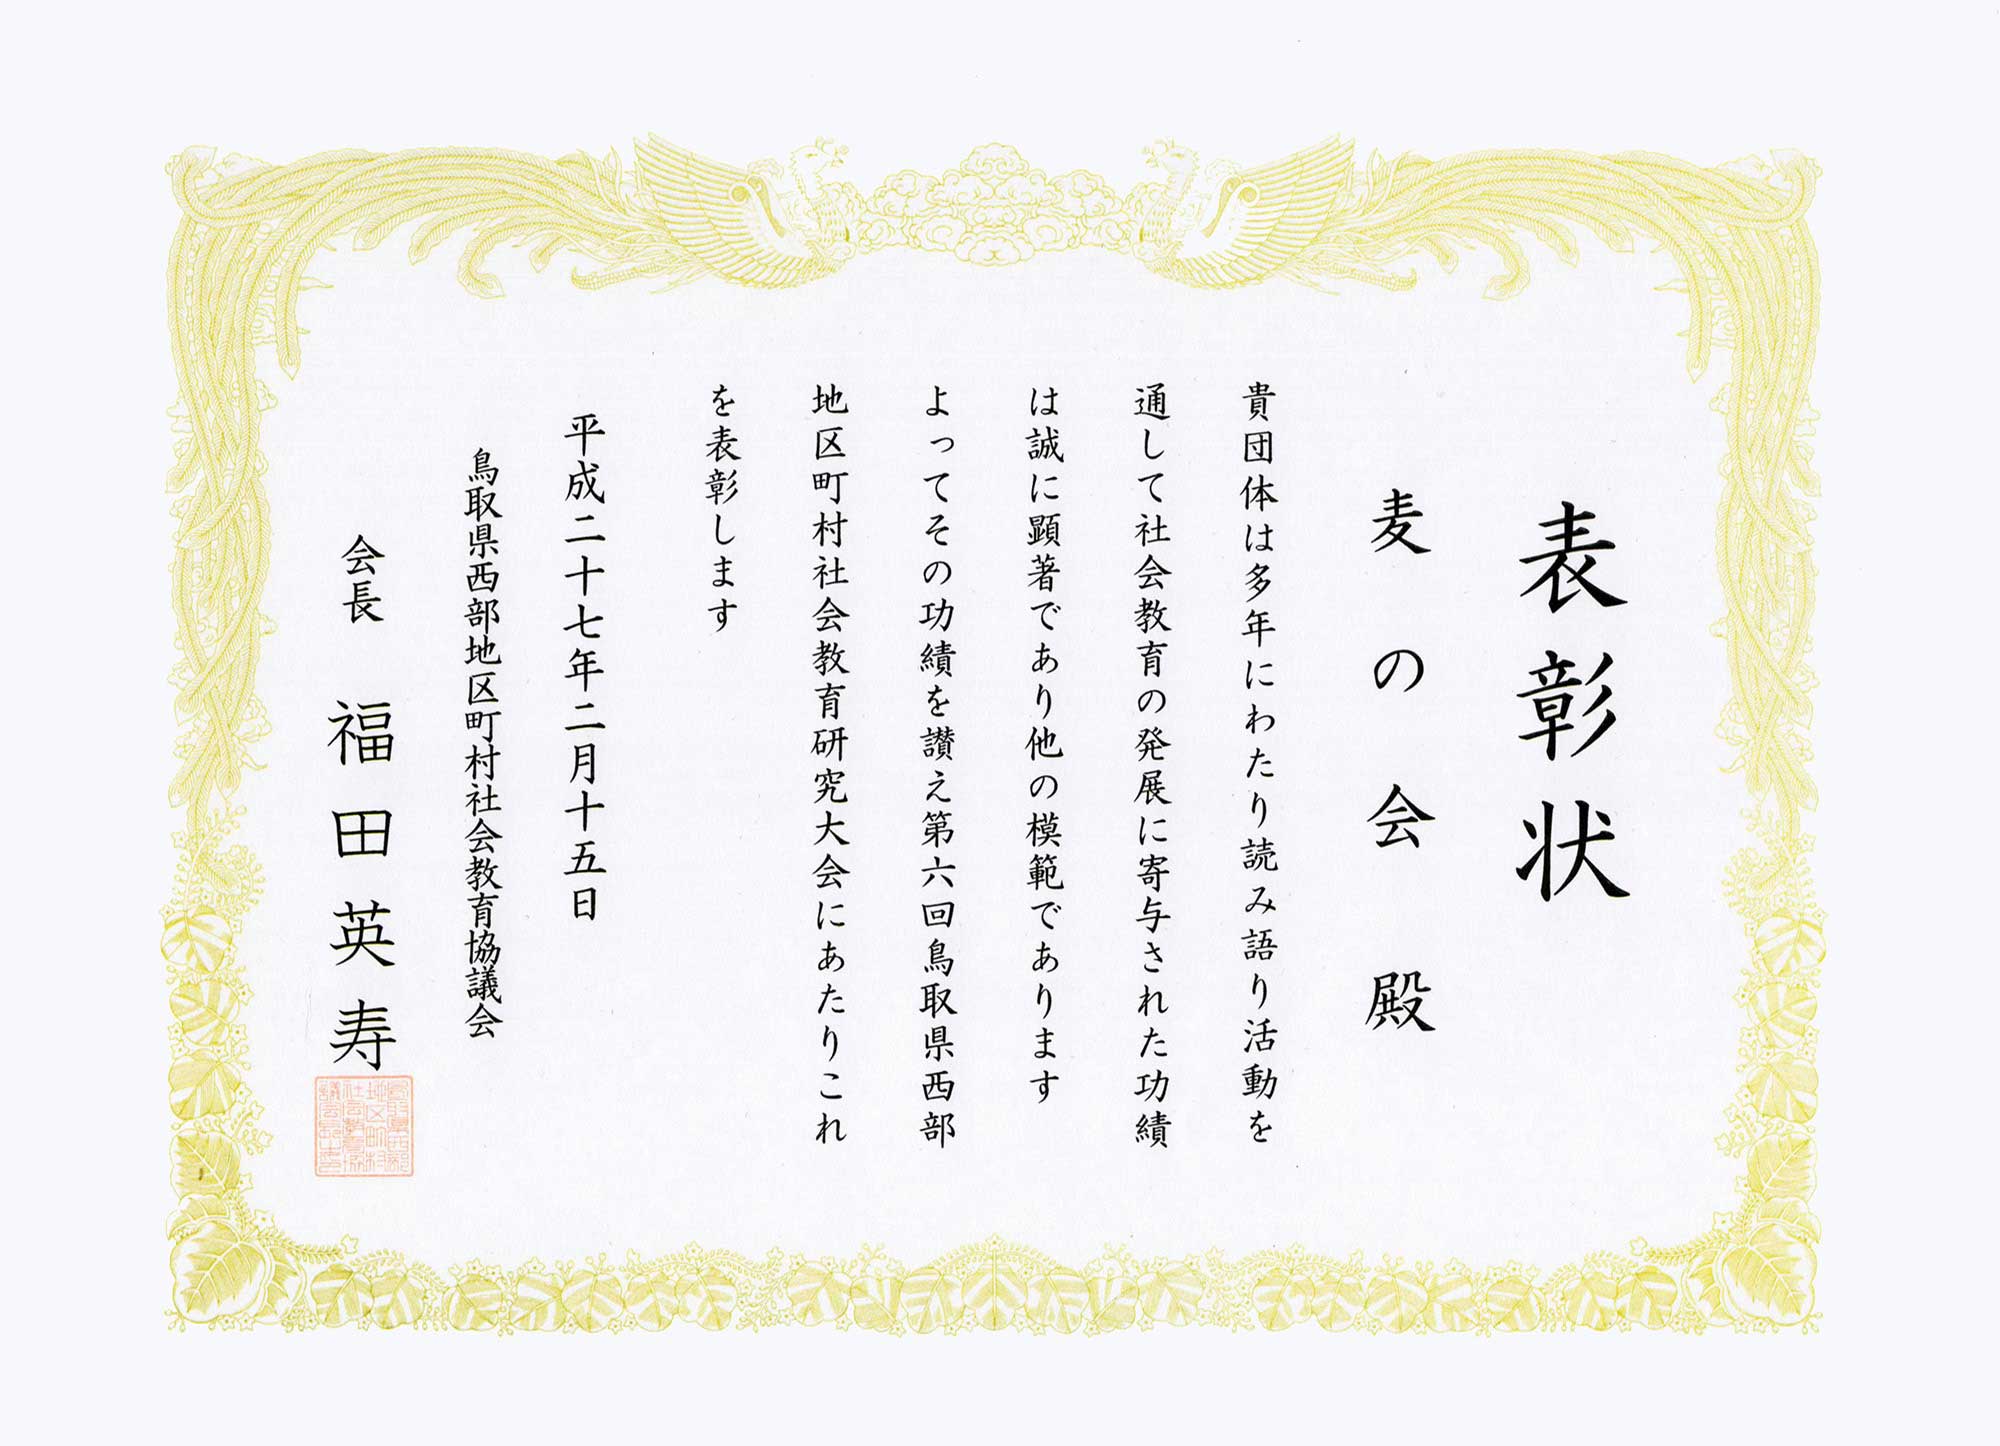 表彰状
麦の会 殿
貴団体は多年にわたり読み語り活動を
通して社会教育の発展に寄与された功績
は誠に顕著であり他の模範であります
よってその功績を讃え第六回鳥取県西部
地区町村社会教育研究大会にあたりこれ
を表彰します
平成二十七年二月十五日
鳥取県西部地区町村社会教育協議会
会長 福田英寿